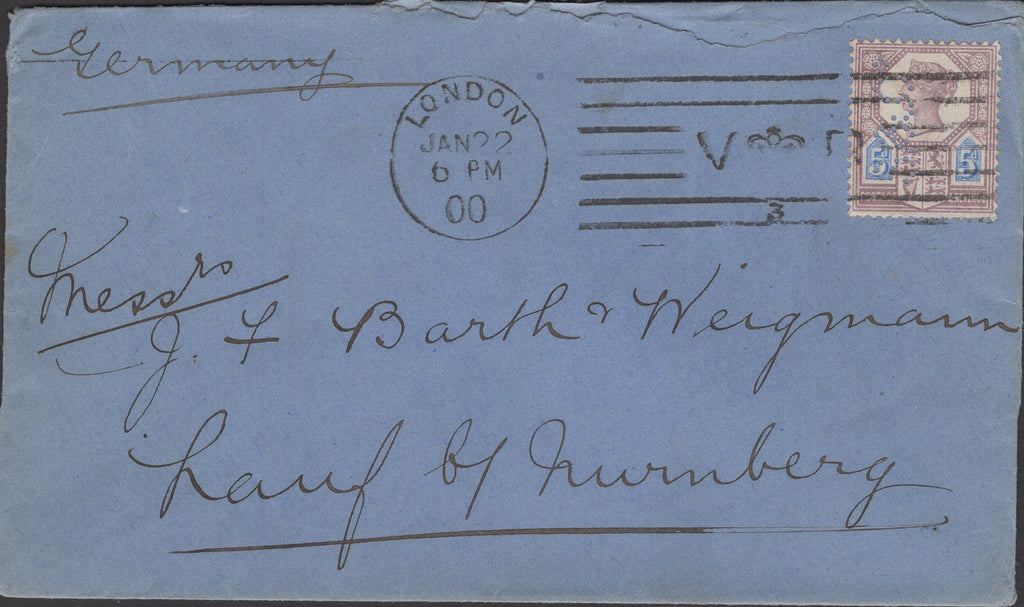 Germany
LONDON
JAN 22
6 PM
00
V R
3
5d 5d
Messrs
J. F Barth & Weigmann
Lauf b/ Nurnberg